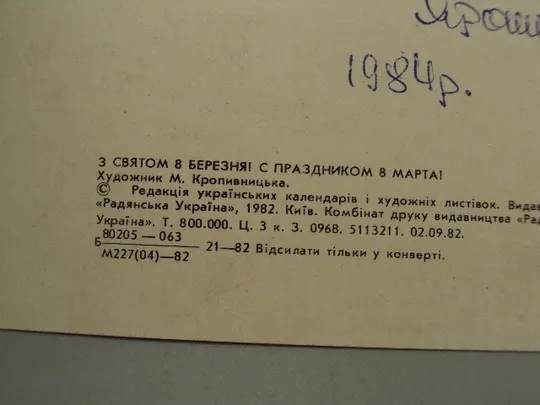 1984р.
З СВЯТОМ 8 БЕРЕЗНЯ! С ПРАЗДНИКОМ 8 МАРТА!
Художник М. Кропивницька.
© Редакція українських календарів і художніх листівок.
«Радянська Україна», 1982. Київ. Комбінат друку видавництва
Україна». Т. 800.000. Ц. 3 к. З. 0968. 5113211. 02.09.82.
Б 80205—063 21—82 Відсилати тільки у конверті.
М227(04)—82